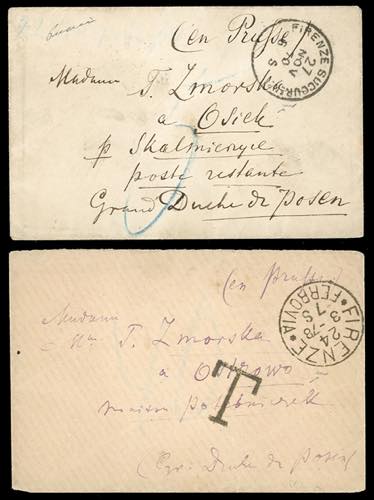 (en Prusse)
FIRENZE SUCCURS
27
NOV
70
5 S
Madame
T. Zmorska
a Osiek
p Skalmierzyce
poste restante
Grand Duché de Posen
(en Prusse)
FIRENZE
24
3-78
7 S
FERROVIA
Madame
T. Zmorska
a Ostrowo
T
maison
(Gr. Duché de Posen)